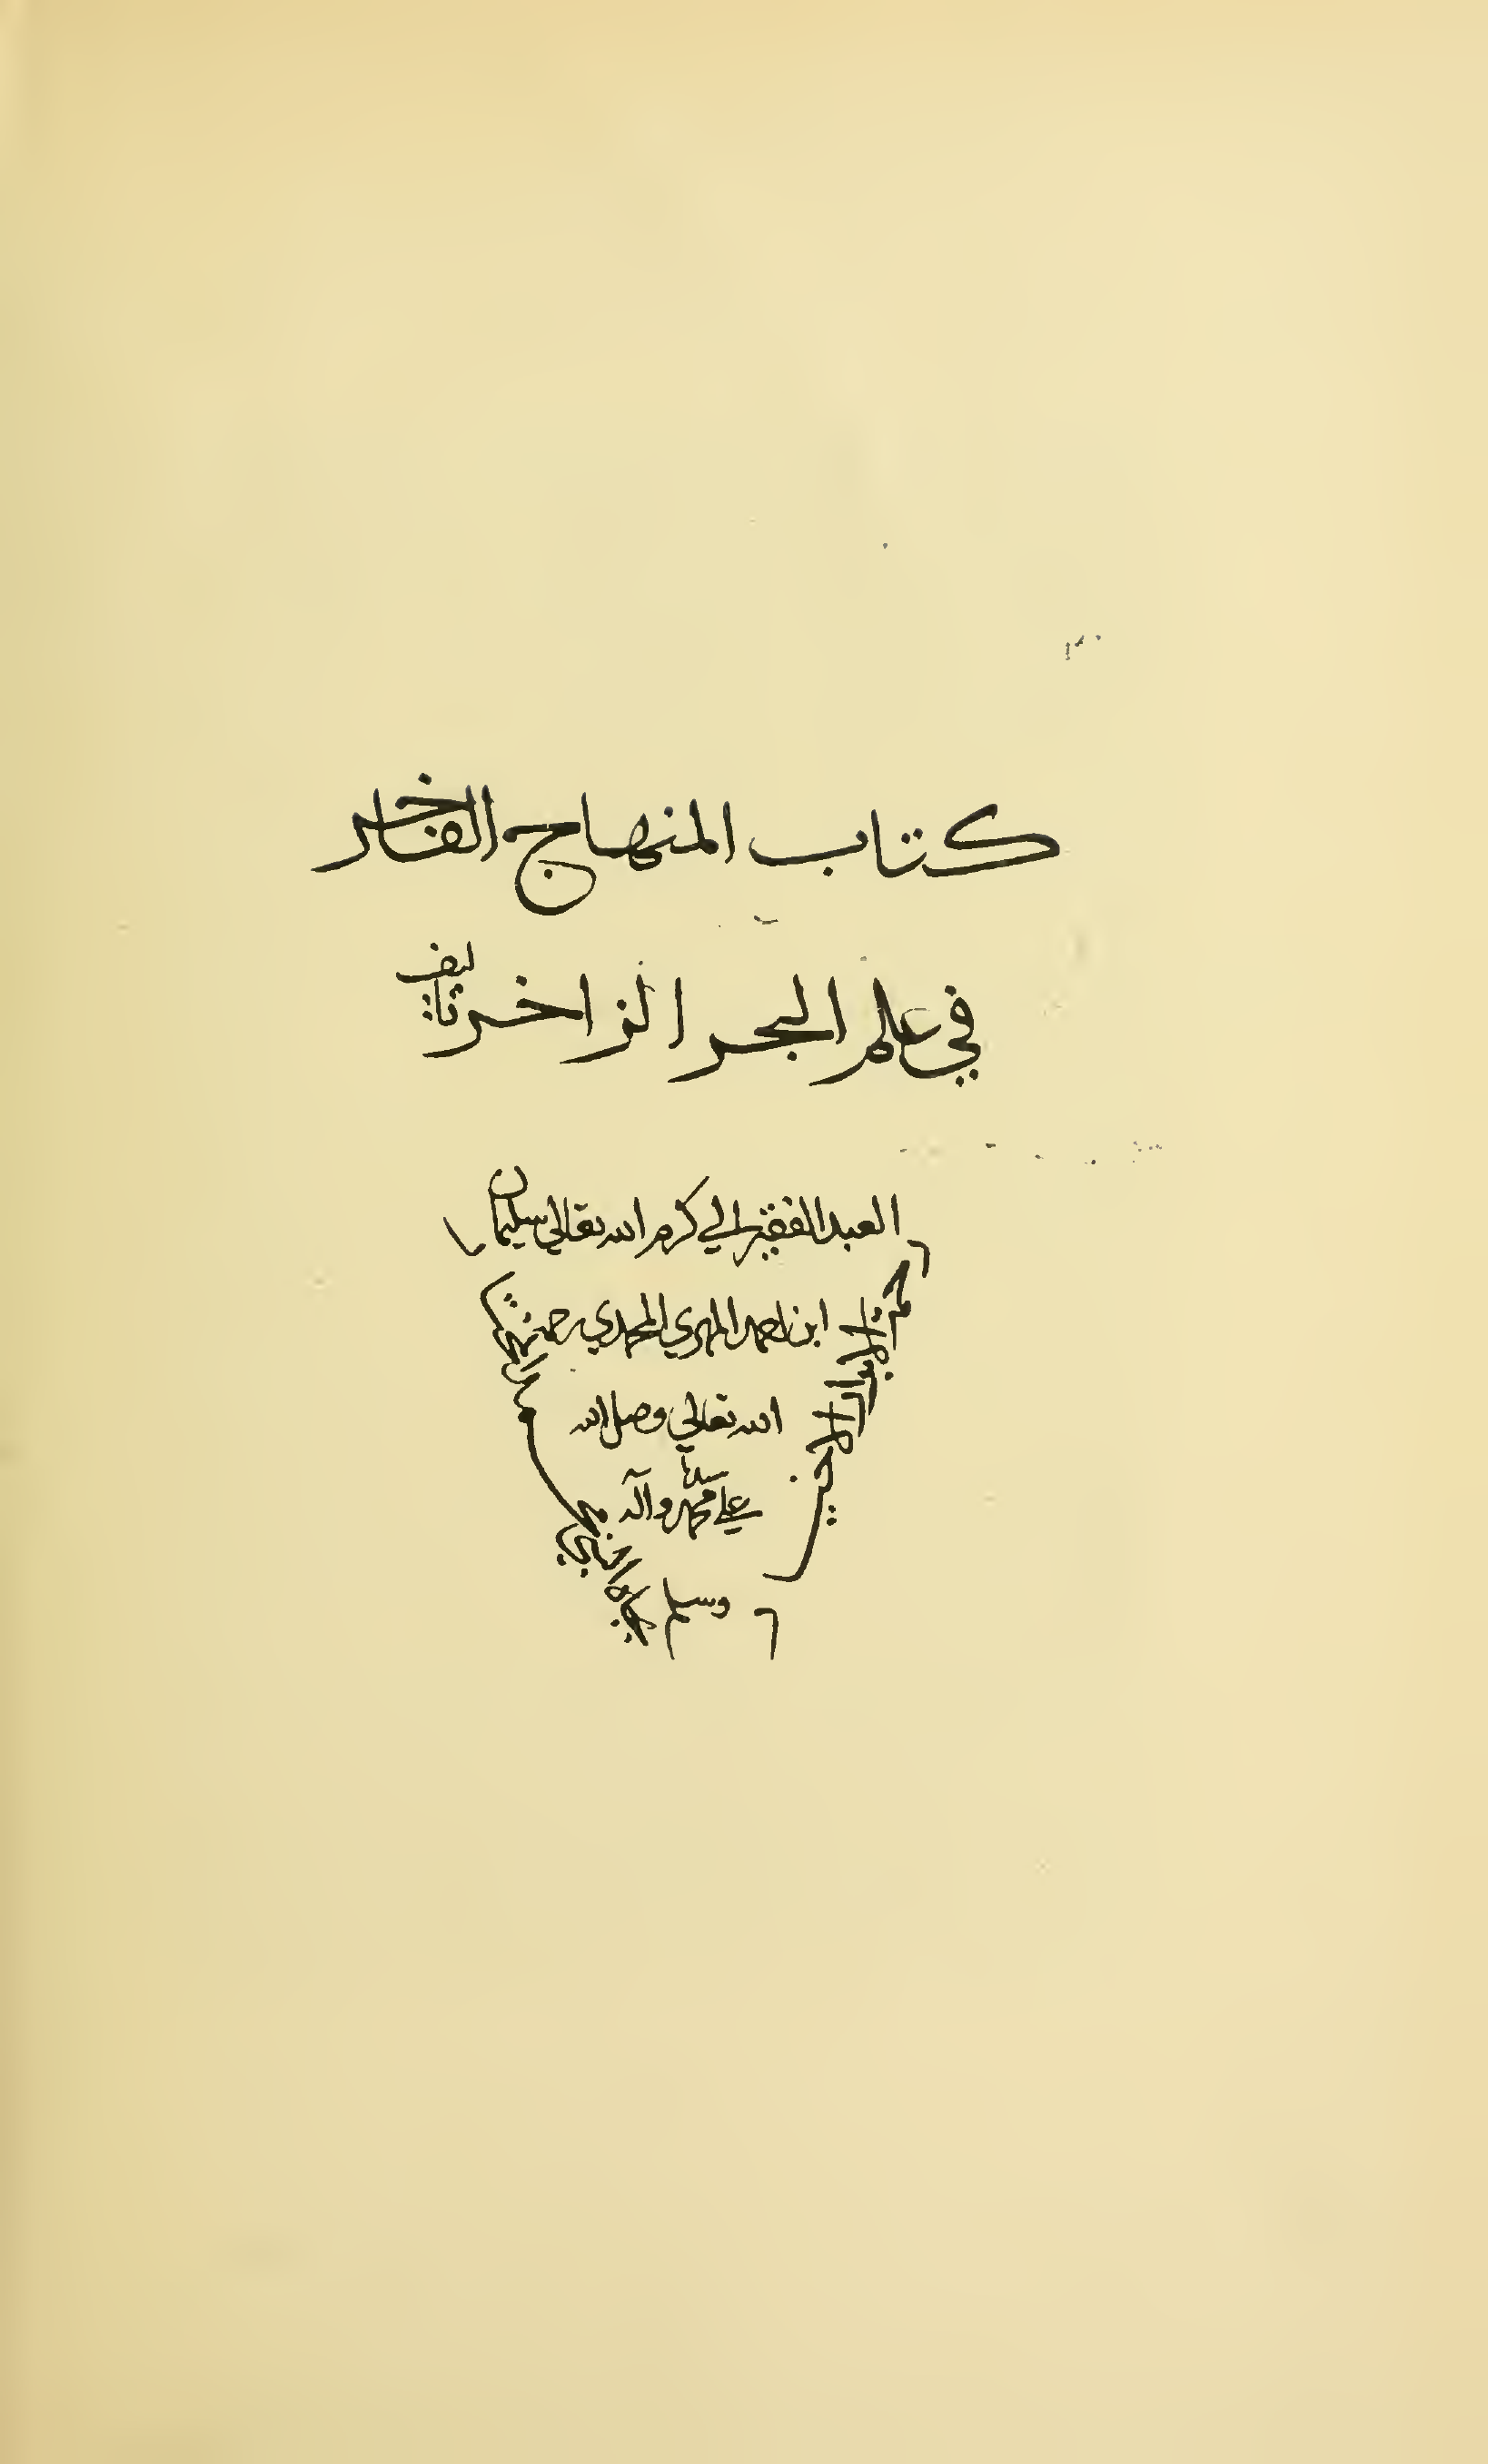 كتاب المنهاج الفاخر
في علم البحر الزاخر تاليف
العبد الفقير الي كرم الله تعالي سليمان
ابن احمد المهري المحمدي رحمه
الله تعالي وصل الله
علي سيدنا محمد وآله
وسلم